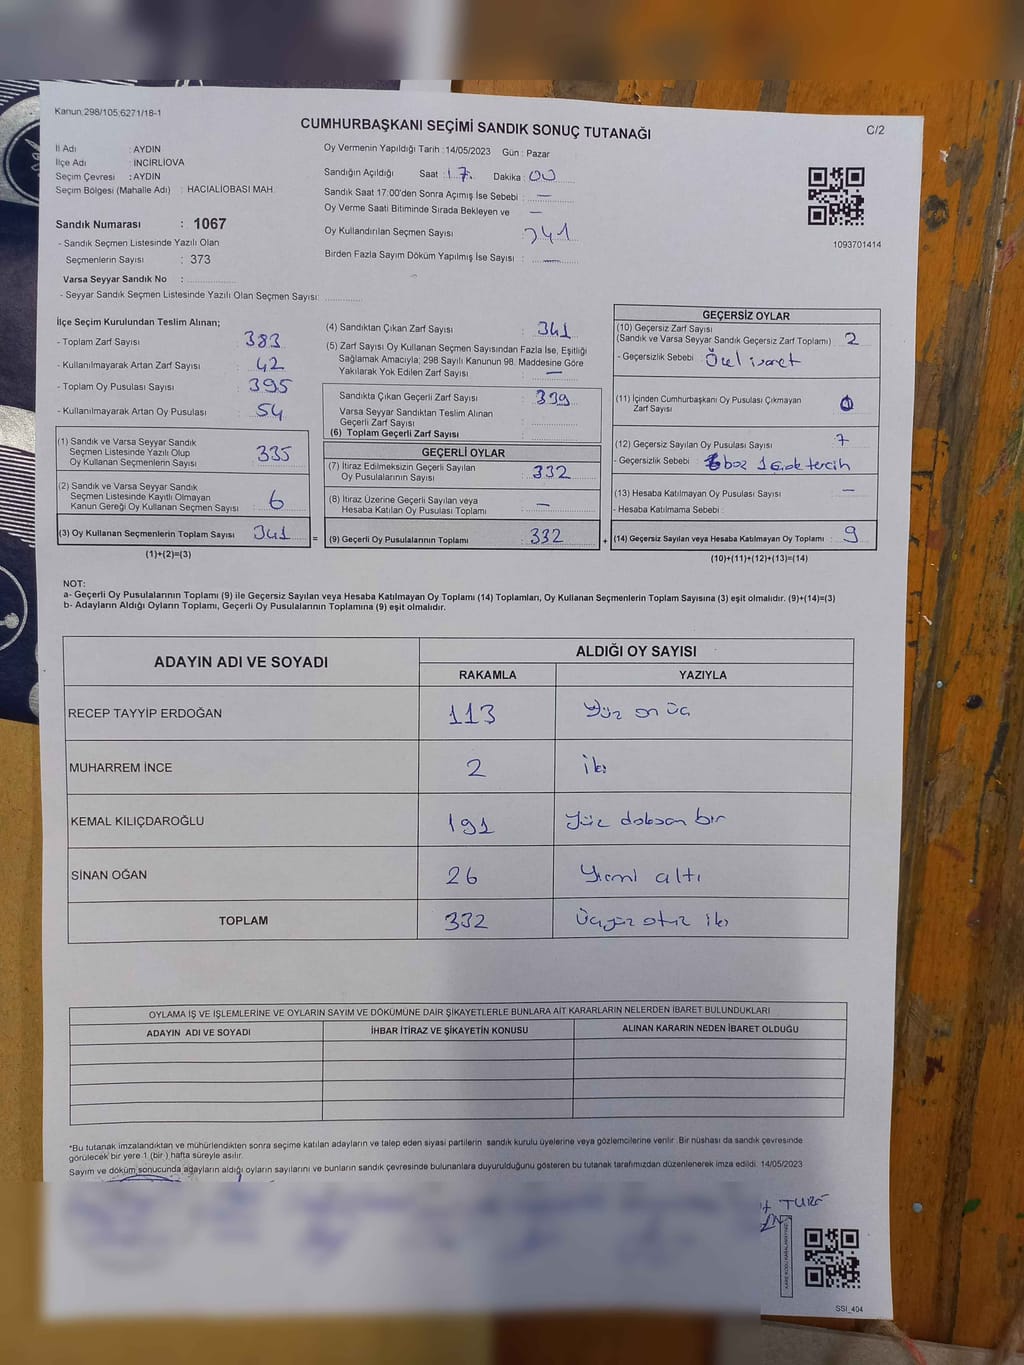 Kanun:298/105;6271/18-1
CUMHURBAŞKANI SEÇİMİ SANDIK SONUÇ TUTANAĞI
C/2
İl Adı : AYDIN
İlçe Adı : İNCİRLİOVA
Seçim Çevresi : AYDIN
Seçim Bölgesi (Mahalle Adı) : HACIALİOBASI MAH.
Sandık Numarası : 1067
- Sandık Seçmen Listesinde Yazılı Olan
Seçmenlerin Sayısı : 373
Varsa Seyyar Sandık No :
- Seyyar Sandık Seçmen Listesinde Yazılı Olan Seçmen Sayısı:
Oy Vermenin Yapıldığı Tarih : 14/05/2023 Gün : Pazar
Sandığın Açıldığı Saat : 17 Dakika : 00
Sandık Saat 17:00'den Sonra Açımış İse Sebebi : —
Oy Verme Saati Bitiminde Sırada Bekleyen ve —
Oy Kullandırılan Seçmen Sayısı 341
Birden Fazla Sayım Döküm Yapılmış İse Sayısı : —
1093701414
İlçe Seçim Kurulundan Teslim Alınan;
- Toplam Zarf Sayısı : 383
- Kullanılmayarak Artan Zarf Sayısı : 42
- Toplam Oy Pusulası Sayısı : 395
- Kullanılmayarak Artan Oy Pusulası : 54
(1) Sandık ve Varsa Seyyar Sandık
Seçmen Listesinde Yazılı Olup
Oy Kullanan Seçmenlerin Sayısı : 335
(2) Sandık ve Varsa Seyyar Sandık
Seçmen Listesinde Kayıtlı Olmayan
Kanun Gereği Oy Kullanan Seçmen Sayısı : 6
(3) Oy Kullanan Seçmenlerin Toplam Sayısı : 341 =
(1)+(2)=(3)
(4) Sandıktan Çıkan Zarf Sayısı : 341
(5) Zarf Sayısı Oy Kullanan Seçmen Sayısından Fazla İse, Eşitliği
Sağlamak Amacıyla; 298 Sayılı Kanunun 98. Maddesine Göre
Yakılarak Yok Edilen Zarf Sayısı : —
Sandıkta Çıkan Geçerli Zarf Sayısı : 339
Varsa Seyyar Sandıktan Teslim Alınan
Geçerli Zarf Sayısı :
(6) Toplam Geçerli Zarf Sayısı :
GEÇERLİ OYLAR
(7) İtiraz Edilmeksizin Geçerli Sayılan
Oy Pusulalarının Sayısı : 332
(8) İtiraz Üzerine Geçerli Sayılan veya
Hesaba Katılan Oy Pusulası Toplamı : —
(9) Geçerli Oy Pusulalarının Toplamı : 332 +
GEÇERSİZ OYLAR
(10) Geçersiz Zarf Sayısı
(Sandık ve Varsa Seyyar Sandık Geçersiz Zarf Toplamı) : 2
- Geçersizlik Sebebi : Özel işaret
(11) İçinden Cumhurbaşkanı Oy Pusulası Çıkmayan
Zarf Sayısı : 0
(12) Geçersiz Sayılan Oy Pusulası Sayısı : 7
- Geçersizlik Sebebi : 6 boz 1 tercih
(13) Hesaba Katılmayan Oy Pusulası Sayısı : —
- Hesaba Katılmama Sebebi :
(14) Geçersiz Sayılan veya Hesaba Katılmayan Oy Toplamı : 9
(10)+(11)+(12)+(13)=(14)
NOT:
a- Geçerli Oy Pusulalarının Toplamı (9) ile Geçersiz Sayılan veya Hesaba Katılmayan Oy Toplamı (14) Toplamları, Oy Kullanan Seçmenlerin Toplam Sayısına (3) eşit olmalıdır. (9)+(14)=(3)
b- Adayların Aldığı Oyların Toplamı, Geçerli Oy Pusulalarının Toplamına (9) eşit olmalıdır.
ADAYIN ADI VE SOYADI
ALDIĞI OY SAYISI
RAKAMLA YAZIYLA
RECEP TAYYİP ERDOĞAN 113 Yüz on üç
MUHARREM İNCE 2 iki
KEMAL KILIÇDAROĞLU 191 Yüz doksan bir
SİNAN OĞAN 26 Yirmi altı
TOPLAM 332 Üçyüz otuz iki
OYLAMA İŞ VE İŞLEMLERİNE VE OYLARIN SAYIM VE DÖKÜMÜNE DAİR ŞİKAYETLERLE BUNLARA AİT KARARLARIN NELERDEN İBARET BULUNDUKLARI
ADAYIN ADI VE SOYADI İHBAR İTİRAZ VE ŞİKAYETİN KONUSU ALINAN KARARIN NEDEN İBARET OLDUĞU
*Bu tutanak imzalandıktan ve mühürlendikten sonra seçime katılan adayların ve talep eden siyasi partilerin sandık kurulu üyelerine veya gözlemcilerine verilir. Bir nüshası da sandık çevresinde
görülecek bir yere 1 (bir) hafta süreyle asılır.
Sayım ve döküm sonucunda adayların aldığı oyların sayılarını ve bunların sandık çevresinde bulunanlara duyurulduğunu gösteren bu tutanak tarafımızdan düzenlenerek imza edildi. 14/05/2023
SSI_404